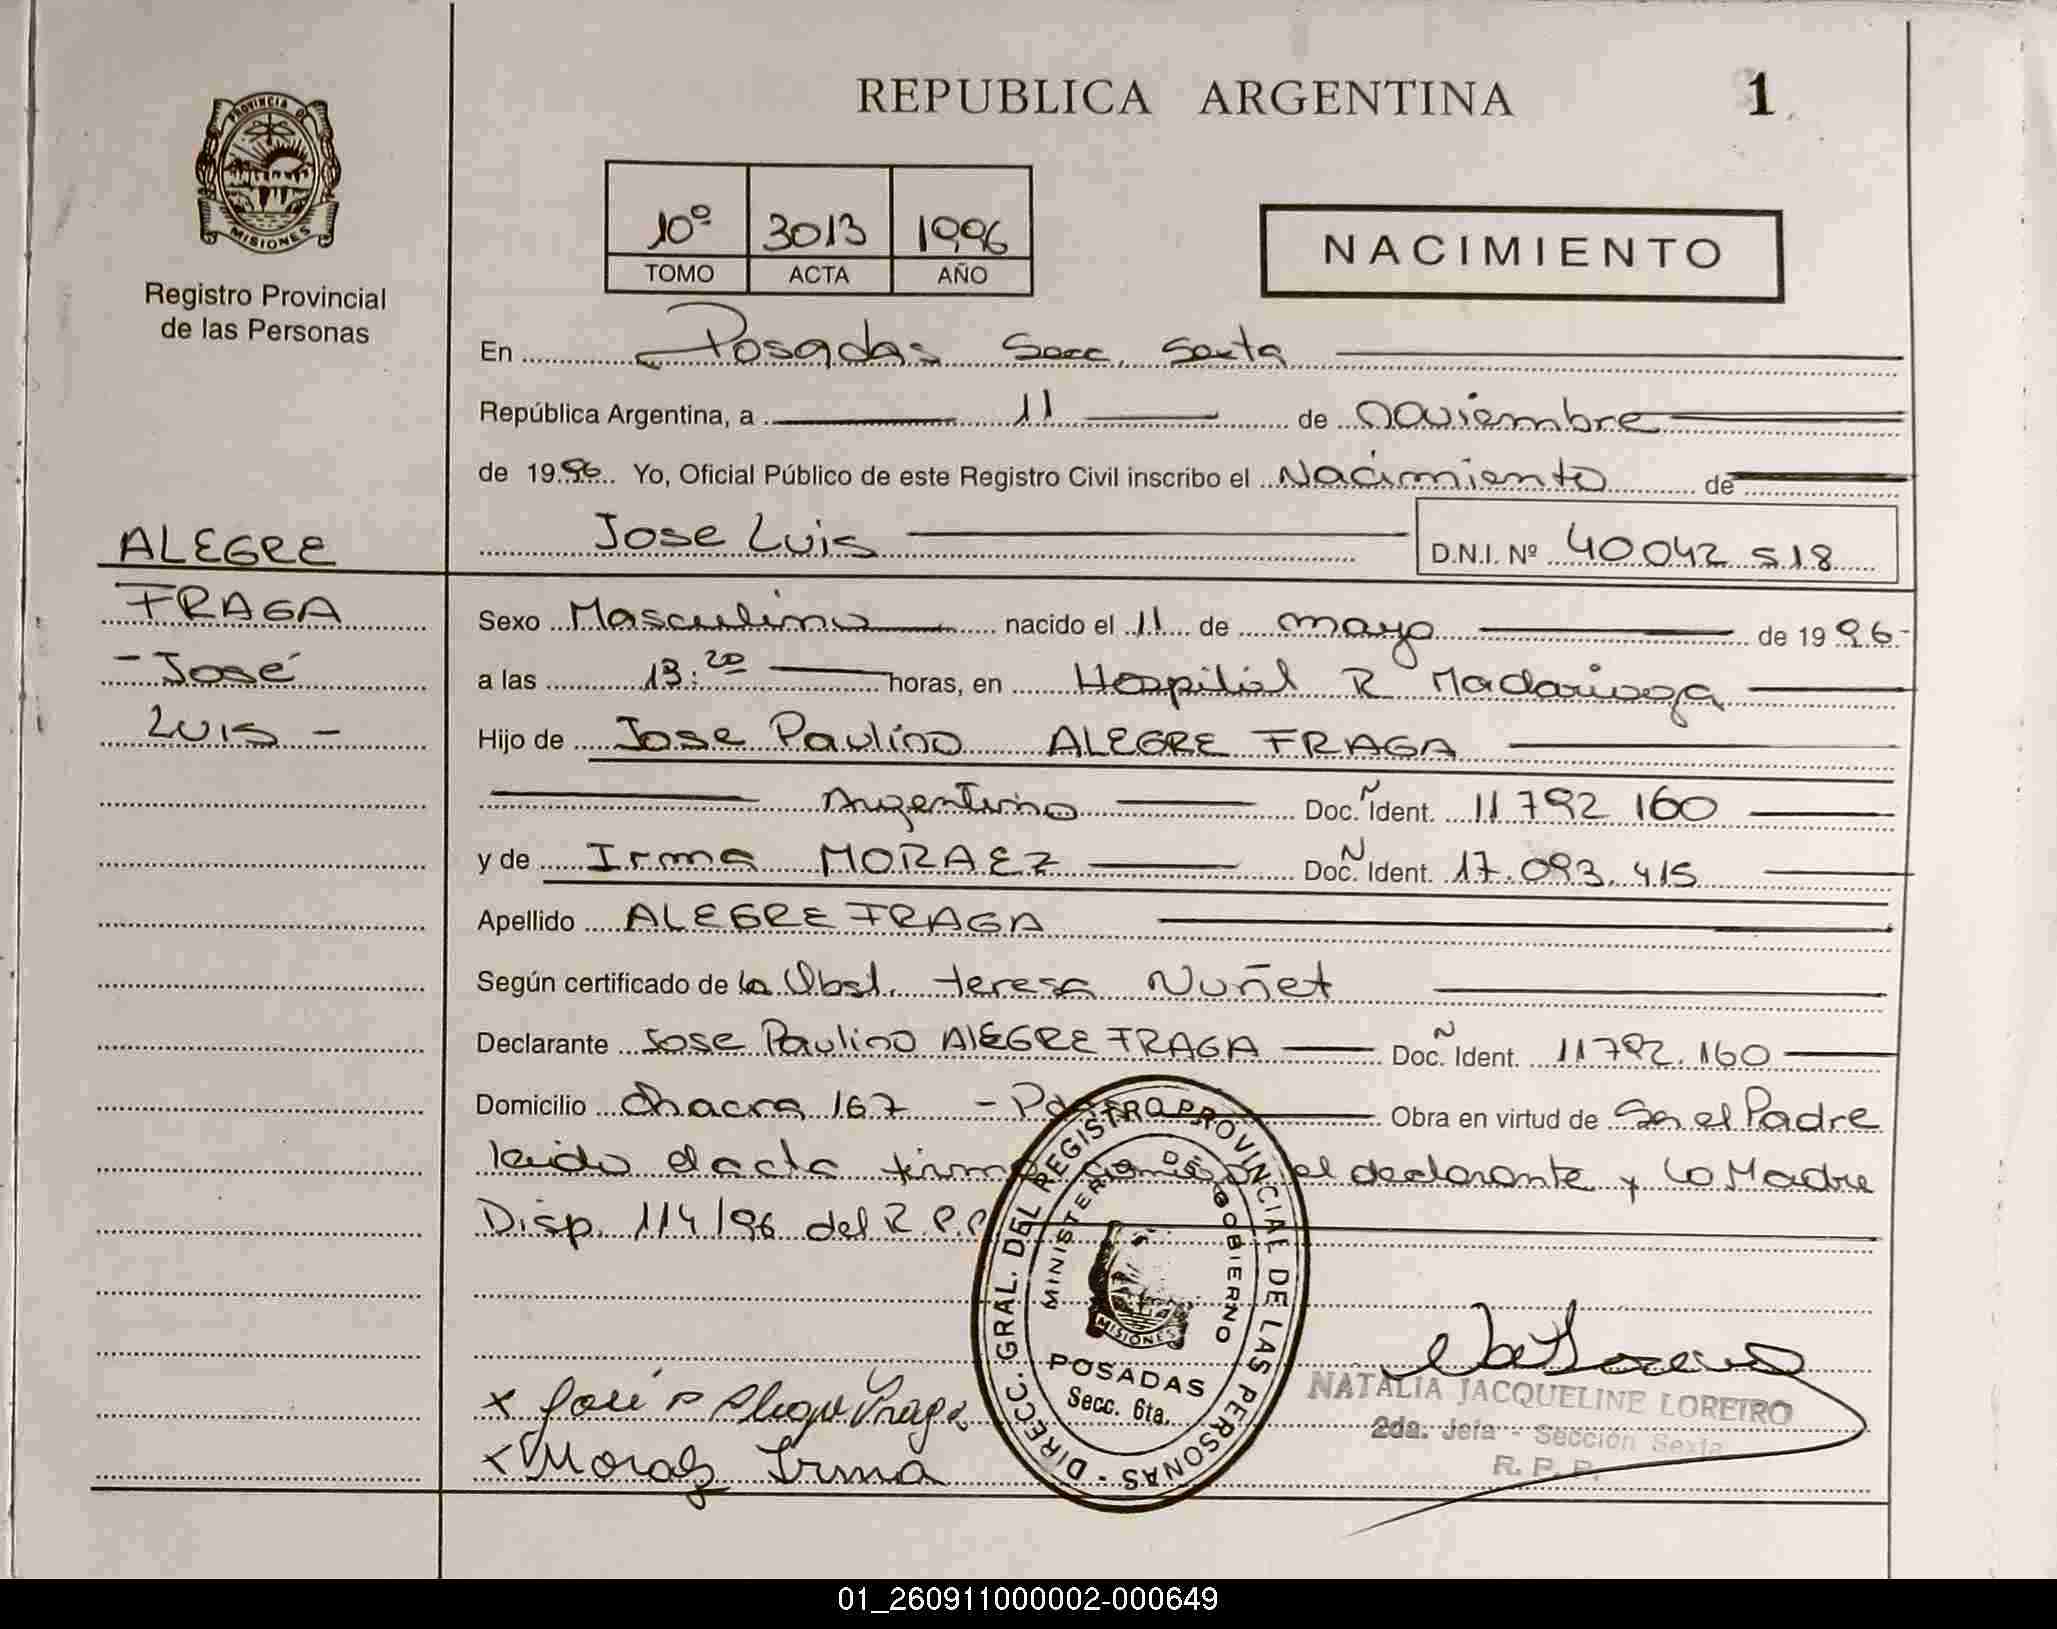 REPUBLICA ARGENTINA 1
PROVINCIA DE
MISIONES
Registro Provincial
de las Personas
10º 3013 1996
TOMO ACTA AÑO
NACIMIENTO
En Posadas Secc. Sexta
República Argentina, a 11 de noviembre
de 1996 Yo, Oficial Público de este Registro Civil inscribo el Nacimiento de
Jose Luis D.N.I. Nº 40042518
ALEGRE
FRAGA
- José
Luis -
Sexo Masculino nacido el 11 de mayo de 1996-
a las 13:20 horas, en Hospital R Madariaga
Hijo de Jose Paulino ALEGRE FRAGA
Argentino Doc. Ñ Ident. 11792 160
y de Irma MORAEZ Doc. Ñ Ident. 17.093.415
Apellido ALEGRE FRAGA
Según certificado de la Obst. teresa Nuñet
Declarante Jose Paulino ALEGRE FRAGA Doc. Ñ Ident. 11792.160
Domicilio Chacra 167 - Obra en virtud de Ser el Padre
leido el acta firma el declarante y la Madre
Disp. 114/96 del R.P.P
DIRECC. GRAL. DEL REGISTRO PROVINCIAL DE LAS PERSONAS -
MINISTERIO DE GOBIERNO
MISIONES
POSADAS
Secc. 6ta.
x José P Alegre Fraga
x Moraez Irma
NATALIA JACQUELINE LOREIRO
2da. Jefa - Sección Sexta
R. P. P.
01_260911000002-000649